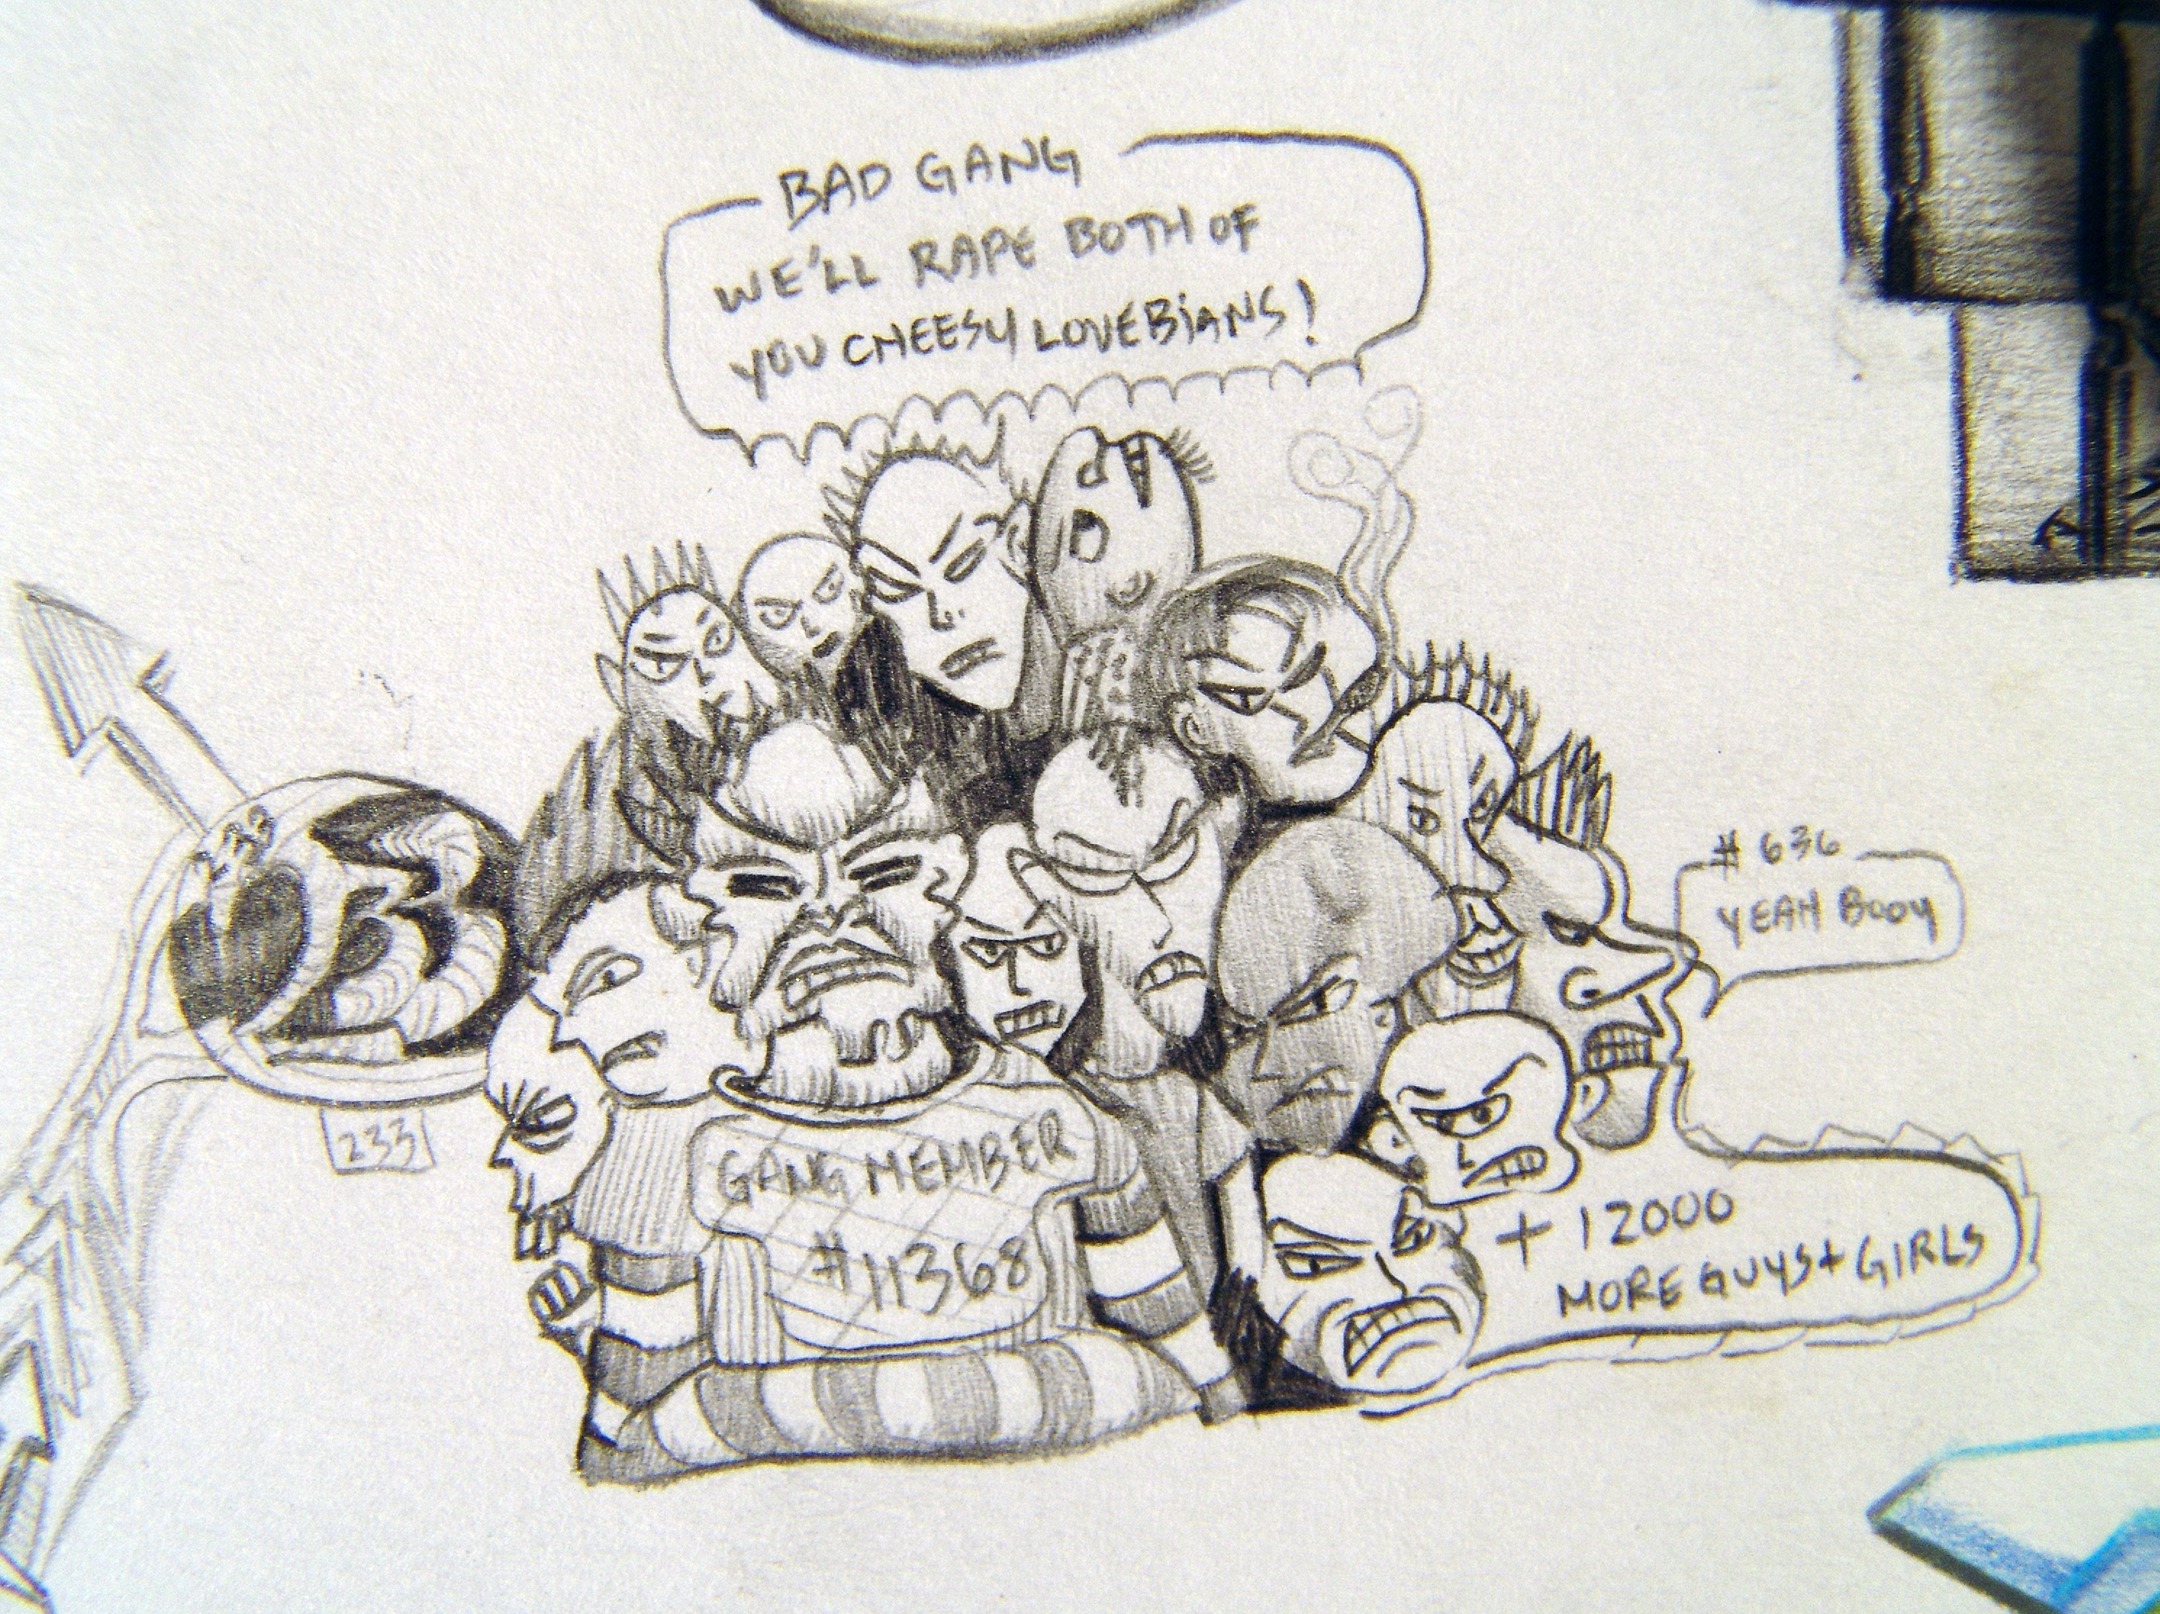 BAD GANG
WE'LL RAPE BOTH OF
YOU CHEESY LOVEBiANS!
233
# 636
YEAH BOOY
233
GANG MEMBER
#11368
+ 12000
MORE GUYS+GIRLS